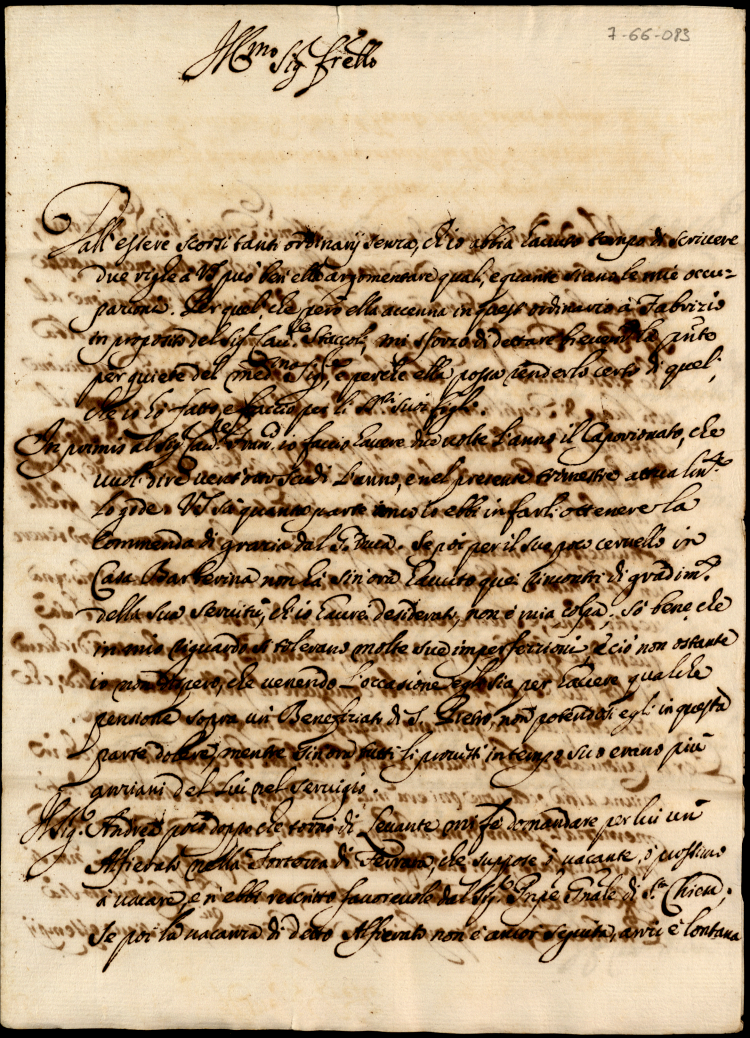 7-66-093
Ill.mo Sig.r frello
Dall'essere scorsi tanti ordinarij senza, ch'io abbia havuto tempo di scrivere
due righe a VS può ben ella argomentare quali, e quante siano le mie occu-
pazioni. Per quel, che però ella accenna in quest'ordinario à Fabrizio
in proposito del Sig.r Cav.re Staccoli, mi sforzo di dettare
per quiete del med.mo Sig.re, e perche ella possa renderlo certo di quel,
che io hò fatto, e faccio per li SS.ri suoi figli.
In primis al Sig.r Cav.re Fran.co io faccio havere due volte l'anno il Caporionato, che
vuol dire vent'otto scudi l'anno, e nel presente trimestre attua lm.te
lo gode. VS sà quanta parte anco io ebbi in farli ottenere la
Commenda di grazia dal G. Duca. Se poi per il suo poco cervello in
Casa Barberina non hà sin'ora havuto quei rincontri di gradim.to
della sua servitù, ch'io haurei desiderati, non è mia colpa; Sò bene, che
in mio riguardo si tolerano molte sue imperfezzioni, e ciò non ostante
io non dispero, che venendo l'occasione egli sia per havere qualche
pensione sopra un Beneficiato di S. Pietro, non potendosi egli in questa
parte dolere, mentre sin'ora tutti li provisti in tempo suo erano più
anziani del lui nel servigio.
Il Sig.r Andrea poco doppo che tornò di Levante mi fè domandare per lui un
Alfierato nella Fortezza di Ferrara, che suppose ò vacante, ò prossimo
à vacare, e n'ebbi rescritto favorevole dal Sig.r Gnale di S.ta Chiesa;
Se poi la vacanza di detto Alfierato non è ancor seguita, anzi è lontana